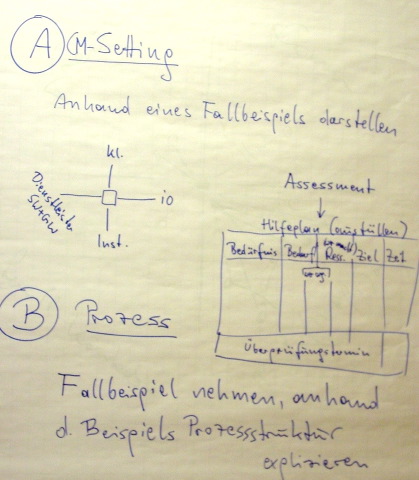 A CM-Setting
Anhand eines Fallbeispiels darstellen
kl.
Dienstleister
io
Inst.
Assessment
Hilfeplan (ausfüllen)
Bedürfnis Bedarf Ress. Ziel Zeit
Überprüfungstermin
B Prozess
Fallbeispiel nehmen, anhand
d. Beispiels Prozessstruktur
explizieren